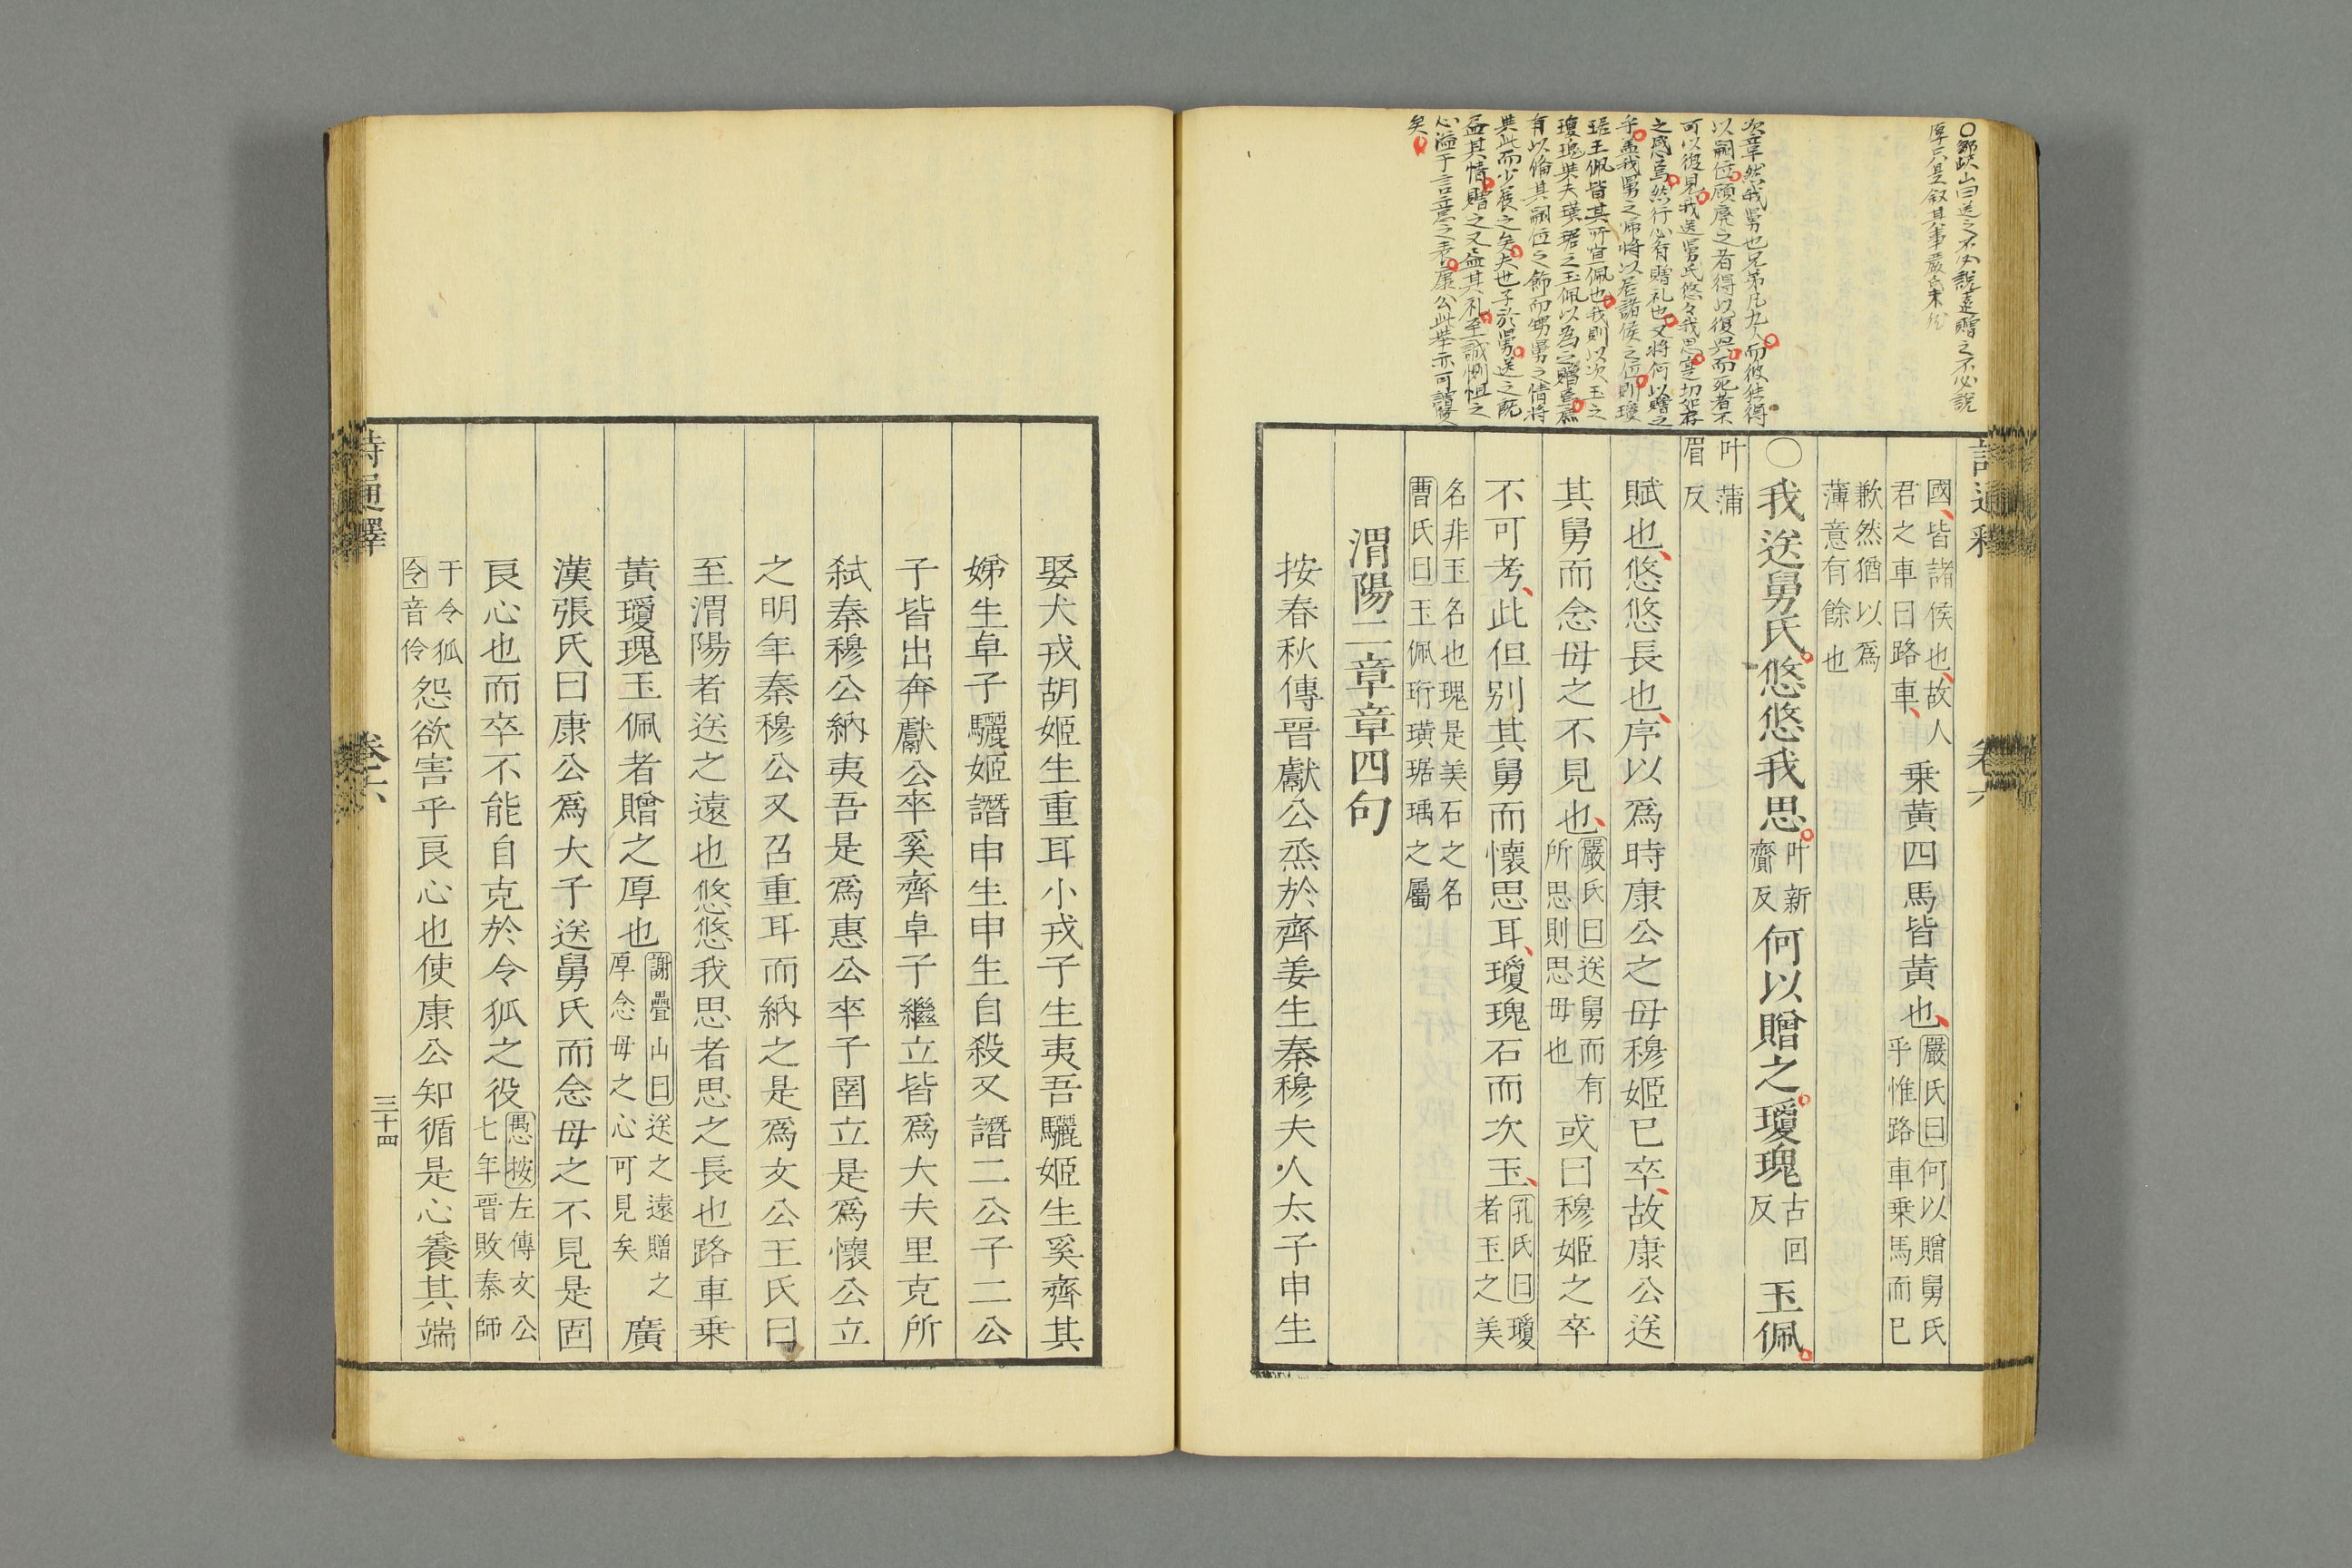 ○鄒嶧山曰送之不必說遠贈之不必說
厚只是叙其事
次章然我舅也兄弟凡九人而彼能得
以嗣位顧廢之者得以復興而死者不
可以復見我送舅氏悠々我思寔切如存
之感焉然行必有贈礼也又將何以贈之
乎盖我舅之歸將以居諸侯之位則瓊
琚玉佩皆其所宜佩也我則以次玉之
瓊瑰與夫璜琚之玉佩以爲之贈意庶
有以備其嗣位之飾而甥舅之情將
與此而少展之矣夫世子於舅送之既
盡其情贈之又盡其礼至誠惻怛之
心溢于言意之表康公此舉亦可謂賢
矣
詩通釋 卷六
國皆諸侯也故人
君之車曰路車
乗黄四馬皆黄也
嚴氏曰何以贈舅氏
乎惟路車乗馬而已
歉然猶以爲
薄意有餘也
○我送舅氏悠悠我思
叶新
齎反
何以贈之瓊瑰
古回
反
玉佩
叶蒲
眉反
賦也悠悠長也序以爲時康公之母穆姬已卒故康公送
其舅而念母之不見也
嚴氏曰送舅而有
所思則思母也
或曰穆姬之卒
不可考此但别其舅而懷思耳瓊瑰石而次玉
孔氏曰瓊
者玉之美
名非玉名也瑰是美石之名
曹氏曰玉佩珩璜琚瑀之屬
渭陽二章章四句
按春秋傳晉獻公烝於齊姜生秦穆夫人太子申生
娶犬戎胡姬生重耳小戎子生夷吾驪姬生奚齊其
娣生卓子驪姬譖申生申生自殺又譖二公子二公
子皆出奔獻公卒奚齊卓子繼立皆爲大夫里克所
弑秦穆公納夷吾是爲惠公卒子圉立是爲懷公立
之明年秦穆公又召重耳而納之是爲文公王氏曰
至渭陽者送之遠也悠悠我思者思之長也路車乗
黃瓊瑰玉佩者贈之厚也
謝疊山曰送之遠贈之
厚念母之心可見矣
廣
漢張氏曰康公爲太子送舅氏而念母之不見是固
良心也而卒不能自克於令狐之役
愚按左傳文公
七年晉敗秦師
于令狐
令音伶
怨欲害乎良心也使康公知循是心養其端
詩通釋 卷六 三十四